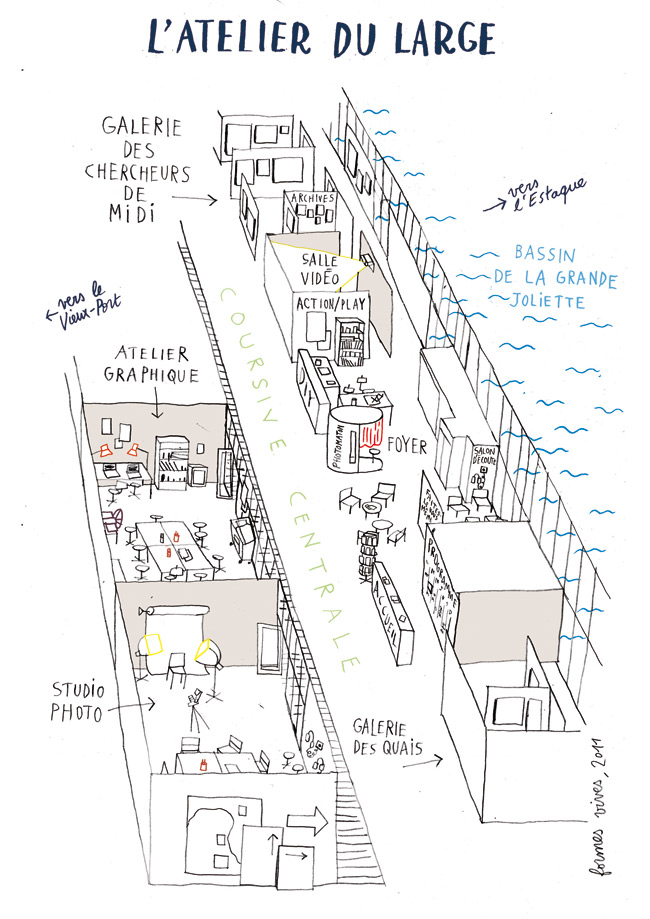 L'ATELIER DU LARGE
GALERIE
DES
CHERCHEURS
DE
MiDi
vers
l'Estaque
ARCHIVES
BASSIN
DE LA GRANDE
JOLIETTE
SALLE
VIDÉO
ACTION/PLAY
vers le
Vieux-Port
ATELIER
GRAPHIQUE
COURSIVE CENTRALE
PHOTOMATON
FOYER
SALON
D'ÉCOUTE
PROGRAMME
ACCUEIL
STUDIO
PHOTO
GALERIE
DES QUAIS
formes vives, 2011